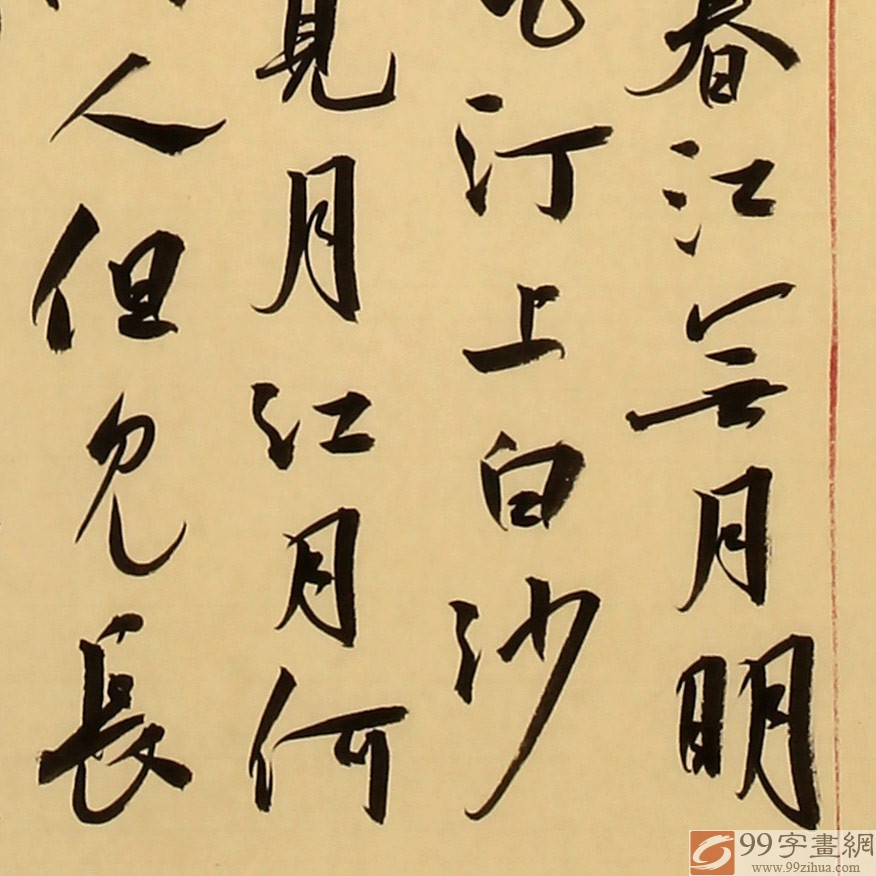 春江無月明
汀上白沙
見月江月何
人但見長
99字畫網
www.99zihua.com